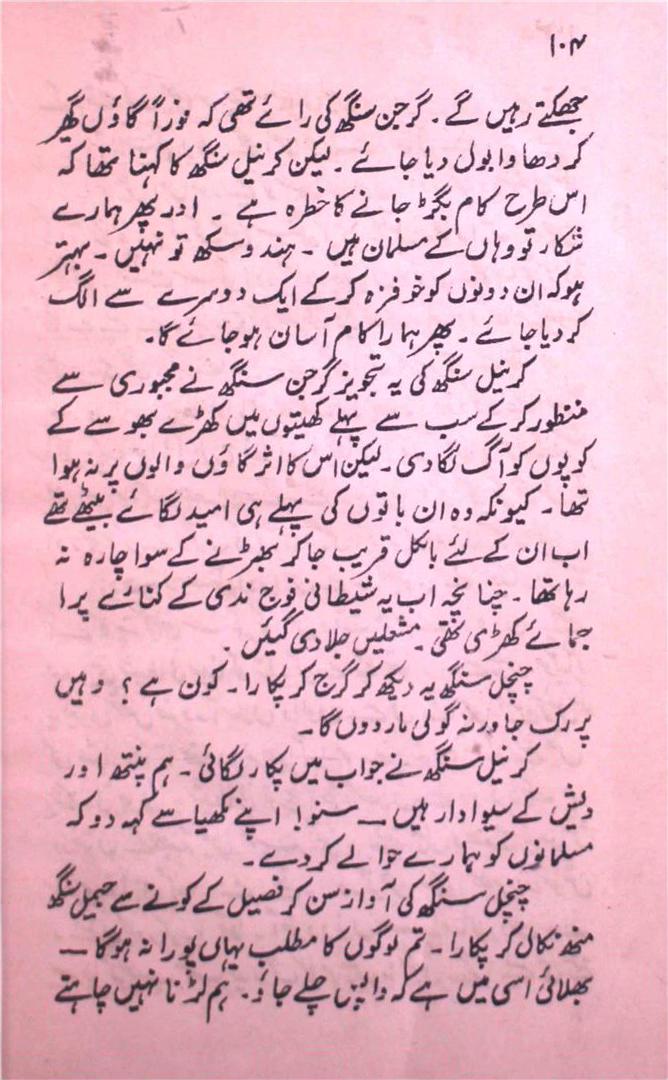 ۱۰۴
جھجکتے رہیں گے۔ گرجن سنگھ کی رائے تھی کہ فوراً گاؤں گھیر
کر دھاوا بول دیا جائے۔ لیکن کرنیل سنگھ کا کہنا تھا کہ
اس طرح کام بگڑ جانے کا خطرہ ہے۔ اور پھر ہمارے
شکار تو وہاں کے مسلمان ہیں۔ ہندو سکھ تو نہیں۔ بہتر
ہو کہ ان دونوں کو خوفزدہ کر کے ایک دوسرے سے الگ
کر دیا جائے۔ پھر ہمارا کام آسان ہو جائے گا۔
کرنیل سنگھ کی یہ تجویز گرجن سنگھ نے مجبوری سے
منظور کر کے سب سے پہلے کھیتوں میں کھڑے بھوسے کے
کوپوں کو آگ لگا دی۔ لیکن اس کا اثر گاؤں والوں پر نہ ہوا
تھا۔ کیونکہ وہ ان باتوں کی پہلے ہی امید لگائے بیٹھے تھے
اب ان کے لئے بالکل قریب جا کر بھڑنے کے سوا چارہ نہ
رہا تھا۔ چنانچہ اب یہ شیطانی فوج ندی کے کنارے پرا
جمائے کھڑی تھی۔ مشعلیں جلا دی گئیں۔
چنچل سنگھ یہ دیکھ کر گرج کر پکارا۔ کون ہے؟ وہیں
پر رک جا ورنہ گولی مار دوں گا۔
کرنیل سنگھ نے جواب میں پکار لگائی۔ ہم پنتھ اور
دیش کے سیوادار ہیں — سنو! اپنے مکھیا سے کہہ دو کہ
مسلمانوں کو ہمارے حوالے کر دے۔
چنچل سنگھ کی آواز سن کر فصیل کے کونے سے جمیل سنگھ
منھ نکال کر پکارا۔ تم لوگوں کا مطلب یہاں پورا نہ ہوگا —
بھلائی اسی میں ہے کہ واپس چلے جاؤ۔ ہم لڑنا نہیں چاہتے